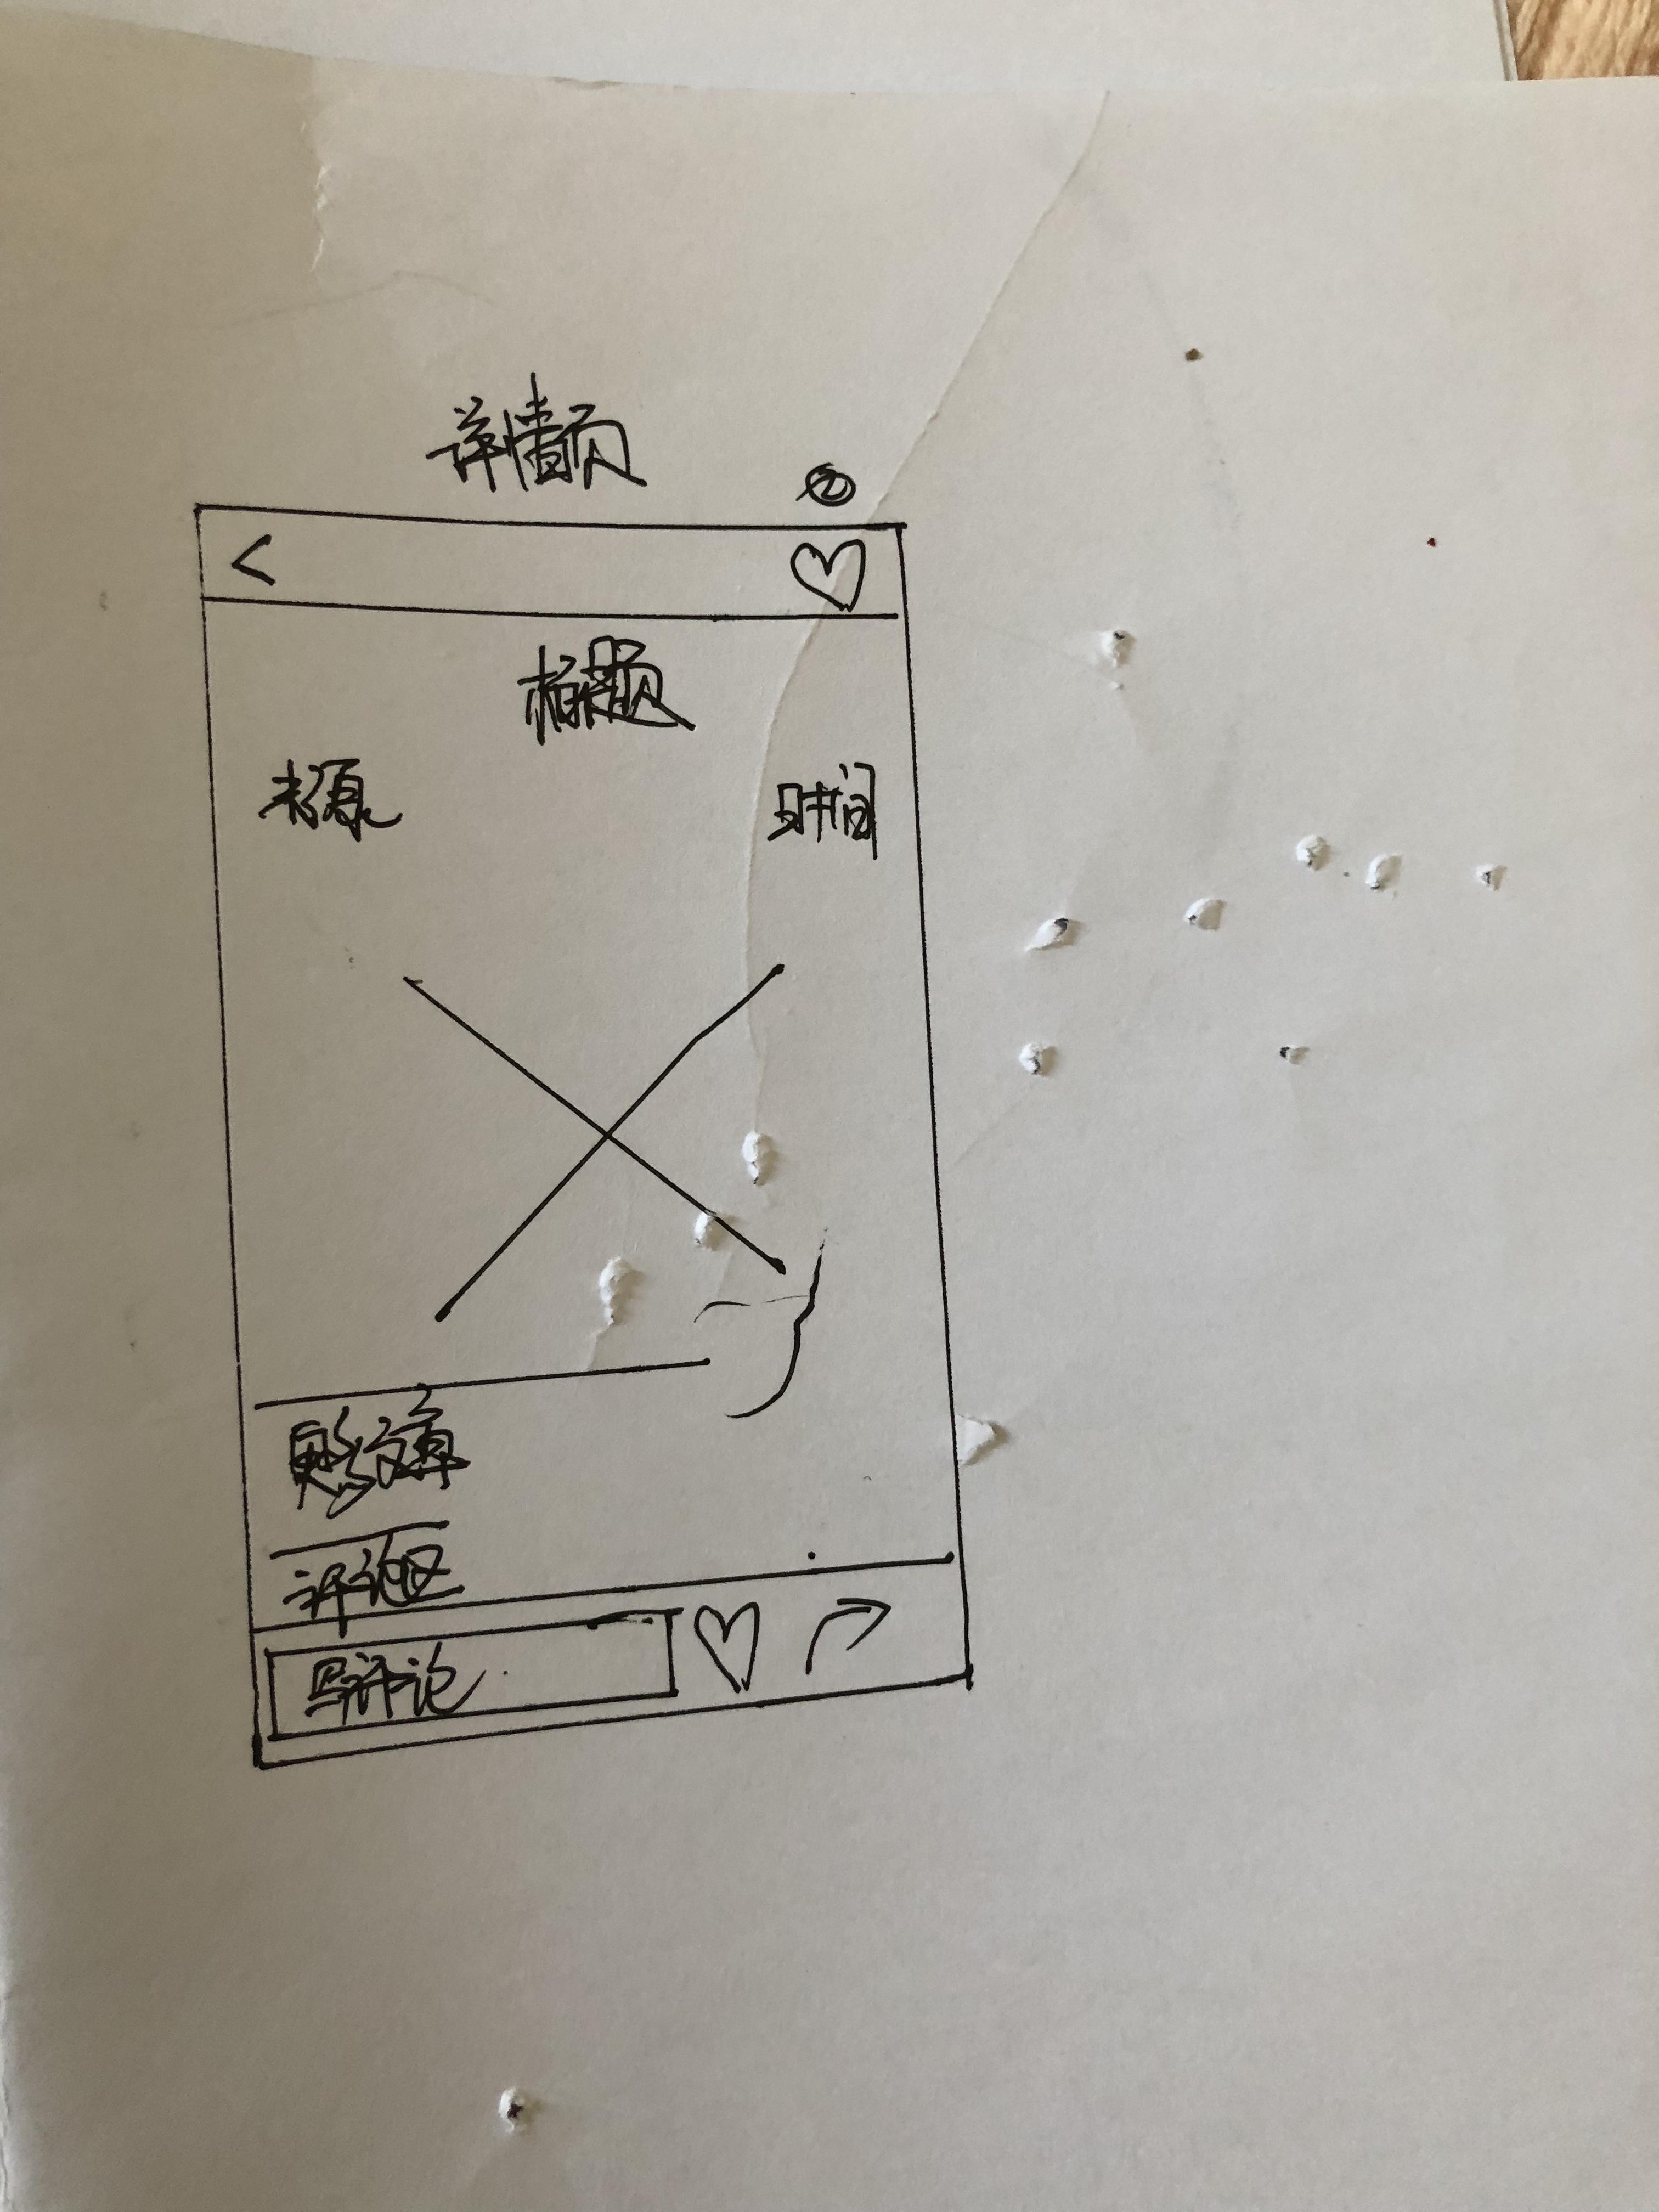 详情页
②
<
标题
来源 时间
评论区
写评论